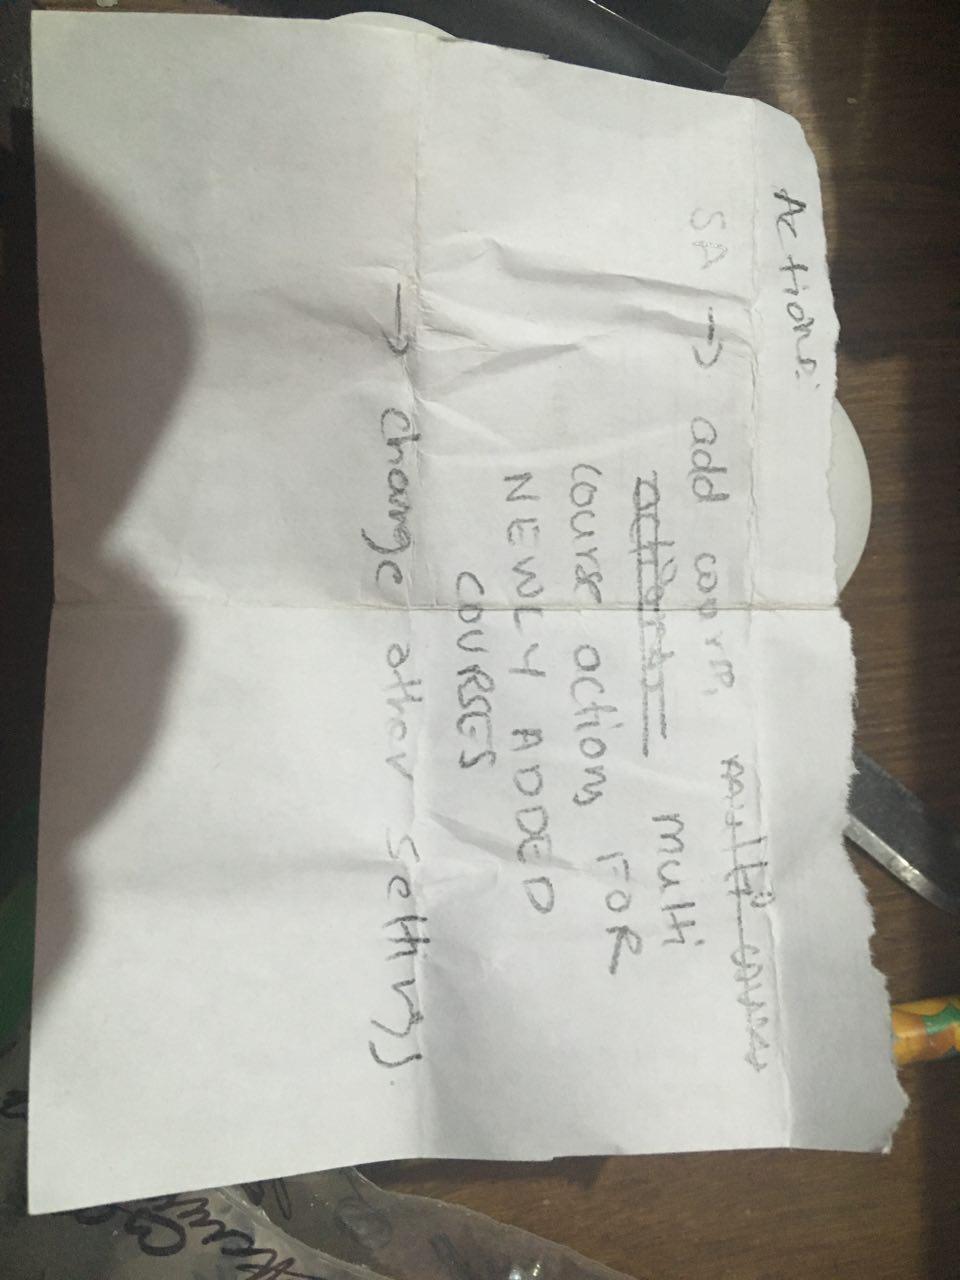 Actions:
SA → add comp, multi course
actions multi
course actions FOR
NEWLY ADDED
COURSES
→ change other settings.